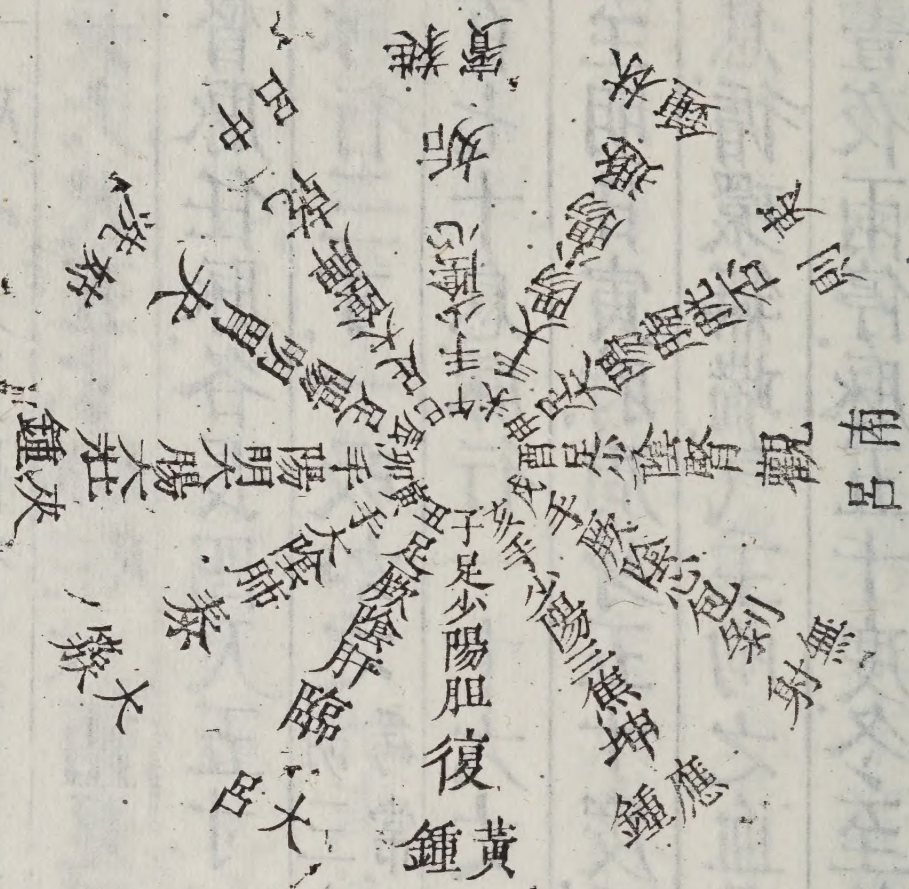 子足少陽胆復黃鍾
丑足厥陰肝臨大呂
寅手太陰肺泰大簇
卯手陽明大腸大壯夾鍾
辰足陽明胃夬姑洗
巳足太陰脾乾中呂
午手少陰心姤蕤賓
未手太陽小腸遯林鍾
申足太陽膀胱否夷則
酉足少陰腎觀南呂
戌手厥陰心包剝無射
亥手少陽三焦坤應鍾